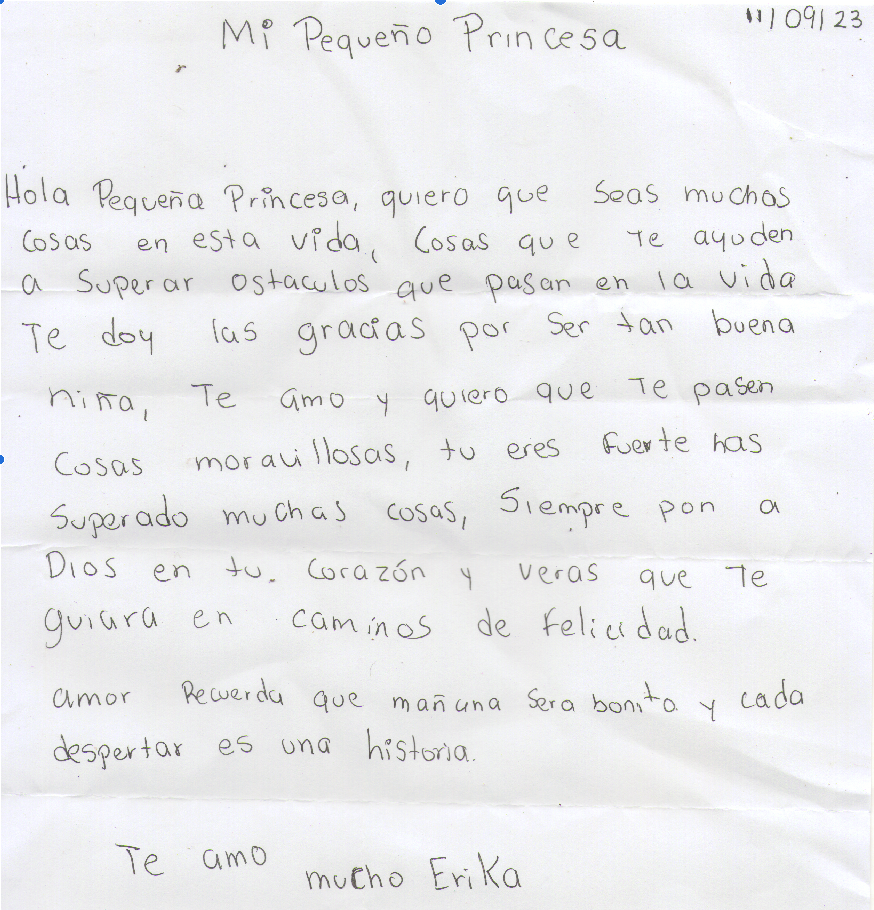 11/09/23
Mi Pequeño Princesa
Hola Pequeña Princesa, quiero que seas muchas
cosas en esta vida, cosas que te ayuden
a superar ostaculos que pasan en la vida
Te doy las gracias por ser tan buena
niña, Te amo y quiero que te pasen
cosas moravillosas, tu eres fuerte has
superado muchas cosas, Siempre pon a
Dios en tu. corazón y veras que te
guiara en caminos de felicidad.
amor Recuerda que mañana sera bonito y cada
despertar es una historia.
Te amo
mucho Erika